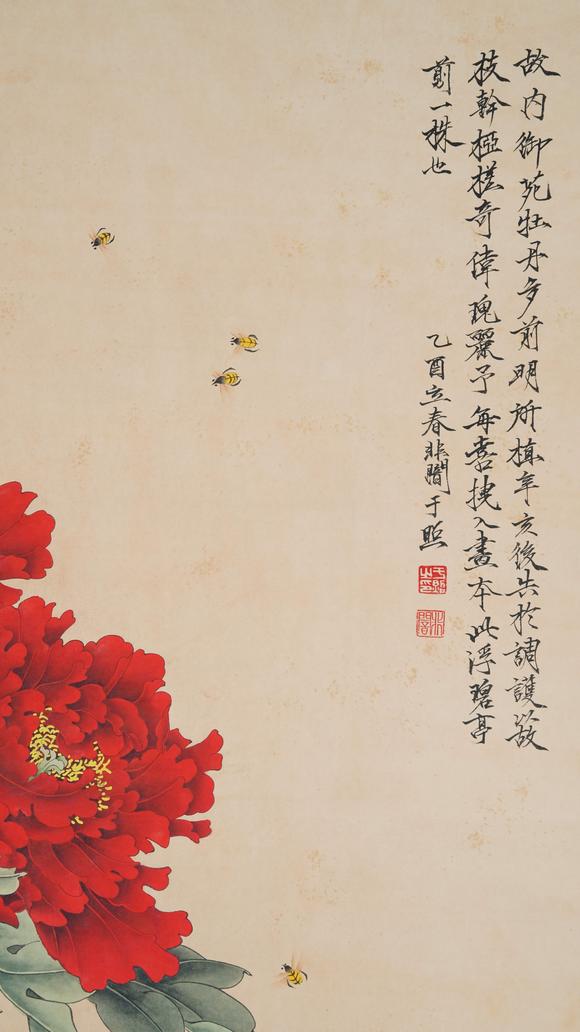 故内御苑牡丹多前明所植辛亥後失於調護故
枝幹極槎奇偉瑰麗予每喜捜入畫本此浮碧亭
前一株也
乙酉立春非闇于照
于照之印
非闇